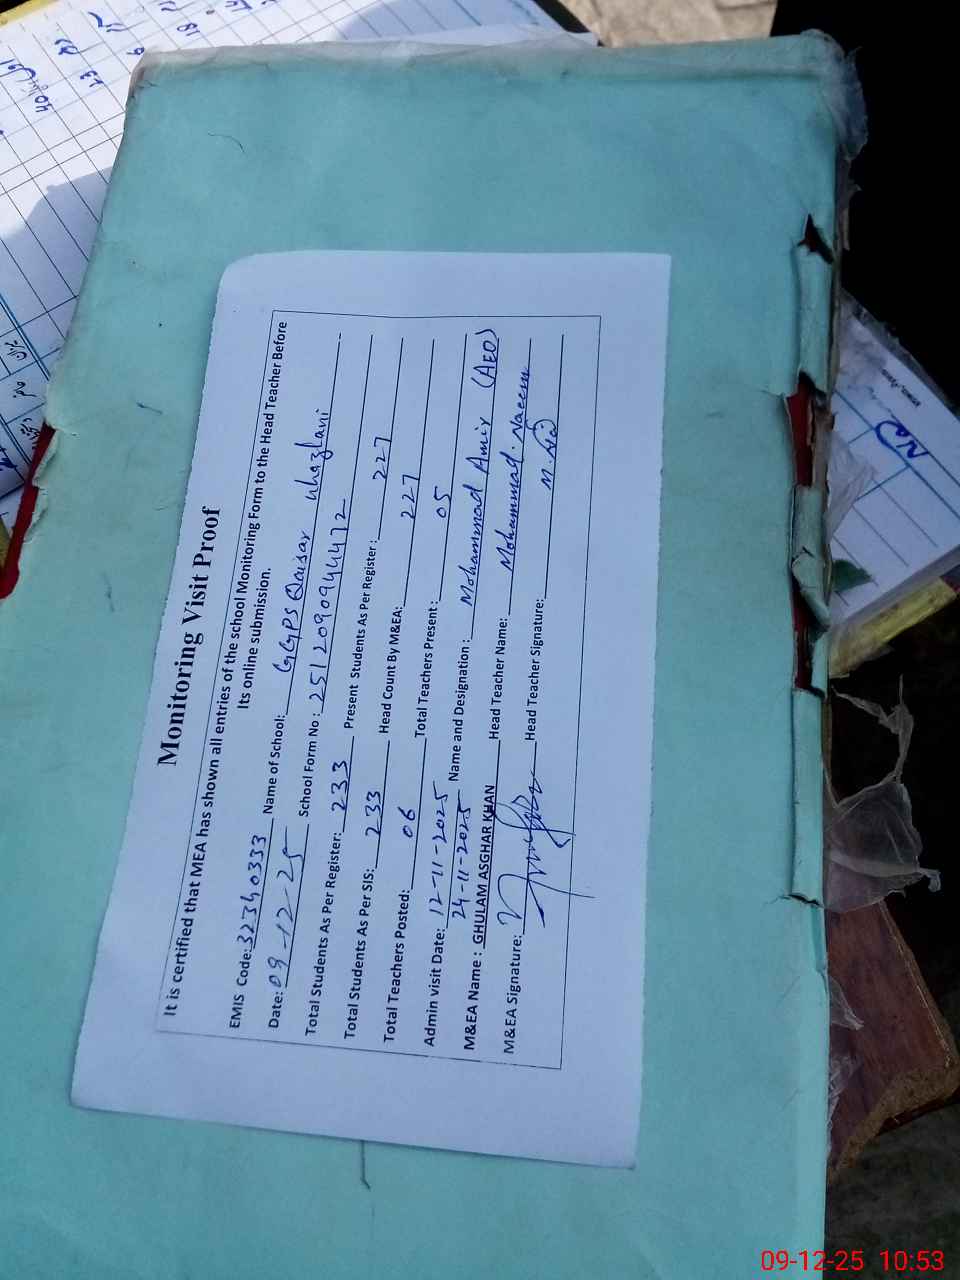 Monitoring Visit Proof
It is certified that MEA has shown all entries of the school Monitoring Form to the Head Teacher Before
Its online submission.
EMIS Code: 32340333 Name of School: GGPS Qaisar
Date: 09-12-25 School Form No : 2512090944472
Total Students As Per Register: 233 Present Students As Per Register : 227
Total Students As Per SIS: 233 Head Count By M&EA: 227
Total Teachers Posted: 06 Total Teachers Present : 05
Admin visit Date: 12-11-2025
24-11-2025 Name and Designation : Mohammad Amir (AEO)
M&EA Name : GHULAM ASGHAR KHAN Head Teacher Name: Mohammad. Naeem
M&EA Signature: Head Teacher Signature:
09-12-25 10:53